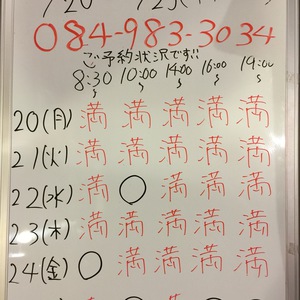 084-983-3034
ご予約状況です!!
8:30〜 10:00〜 14:00〜 16:00〜 19:00〜
20(月) 満 満 満 満 満
21(火) 満 満 満 満 満
22(水) 満 ○ 満 満 満
23(木) 満 満 満 満 満
24(金) ○ 満 満 満 満